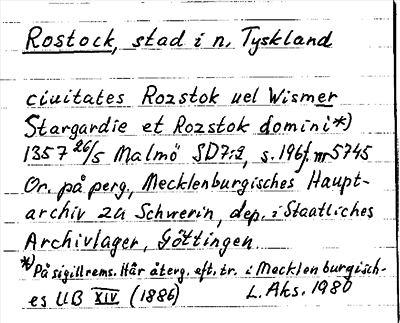 Rostock, stad i n. Tyskland
ciuitates Rozstok uel Wismer
Stargardie et Rozstok domini*)
1357 26/5 Malmö SD7:2, s. 196f. nr 5745
Or. på perg., Mecklenburgisches Haupt-
archiv zu Schwerin, dep. i Staatliches
Archivlager, Göttingen.
*) På sigillrems. Här återg. eft. tr. i Mecklenburgisch-
es UB XIV. (1886) L. Aks. 1980